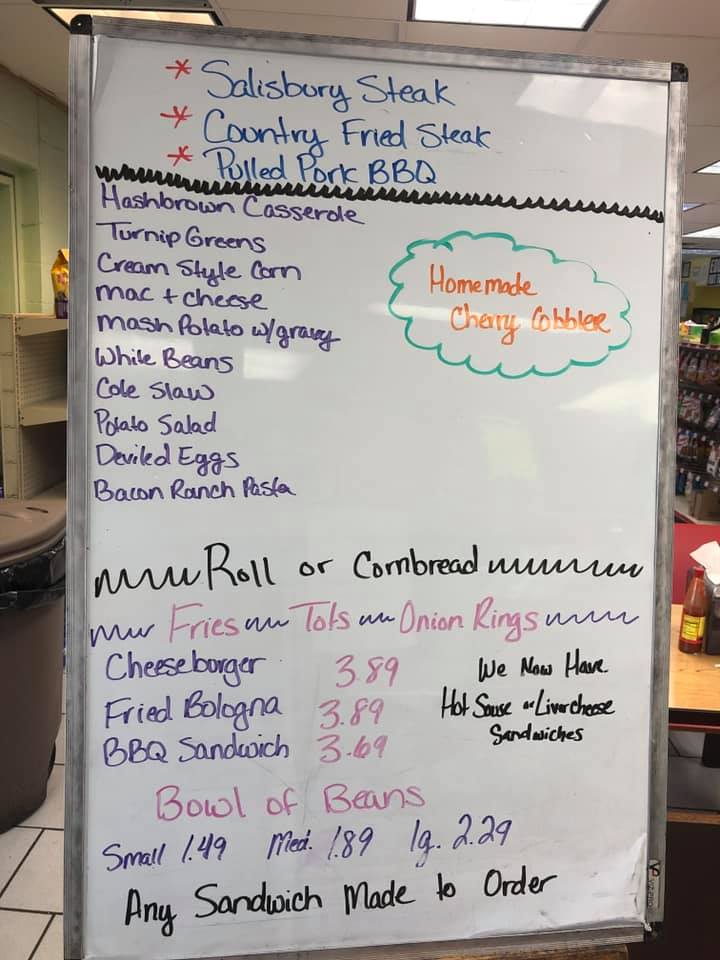 * Salisbury Steak
* Country Fried Steak
* Pulled Pork BBQ
Hashbrown Casserole
Turnip Greens
Cream Style Corn
Mac + cheese
Mash Potato w/gravy
White Beans
Cole Slaw
Potato Salad
Deviled Eggs
Bacon Ranch Pasta
Homemade
Cherry Cobbler
Roll or Cornbread
Fries Tots Onion Rings
Cheeseburger 3.89
Fried Bologna 3.89
BBQ Sandwich 3.69
We Now Have
Hot Souse or Livercheese
Sandwiches
Bowl of Beans
Small 1.49 Med. 1.89 lg. 2.29
Any Sandwich Made to Order